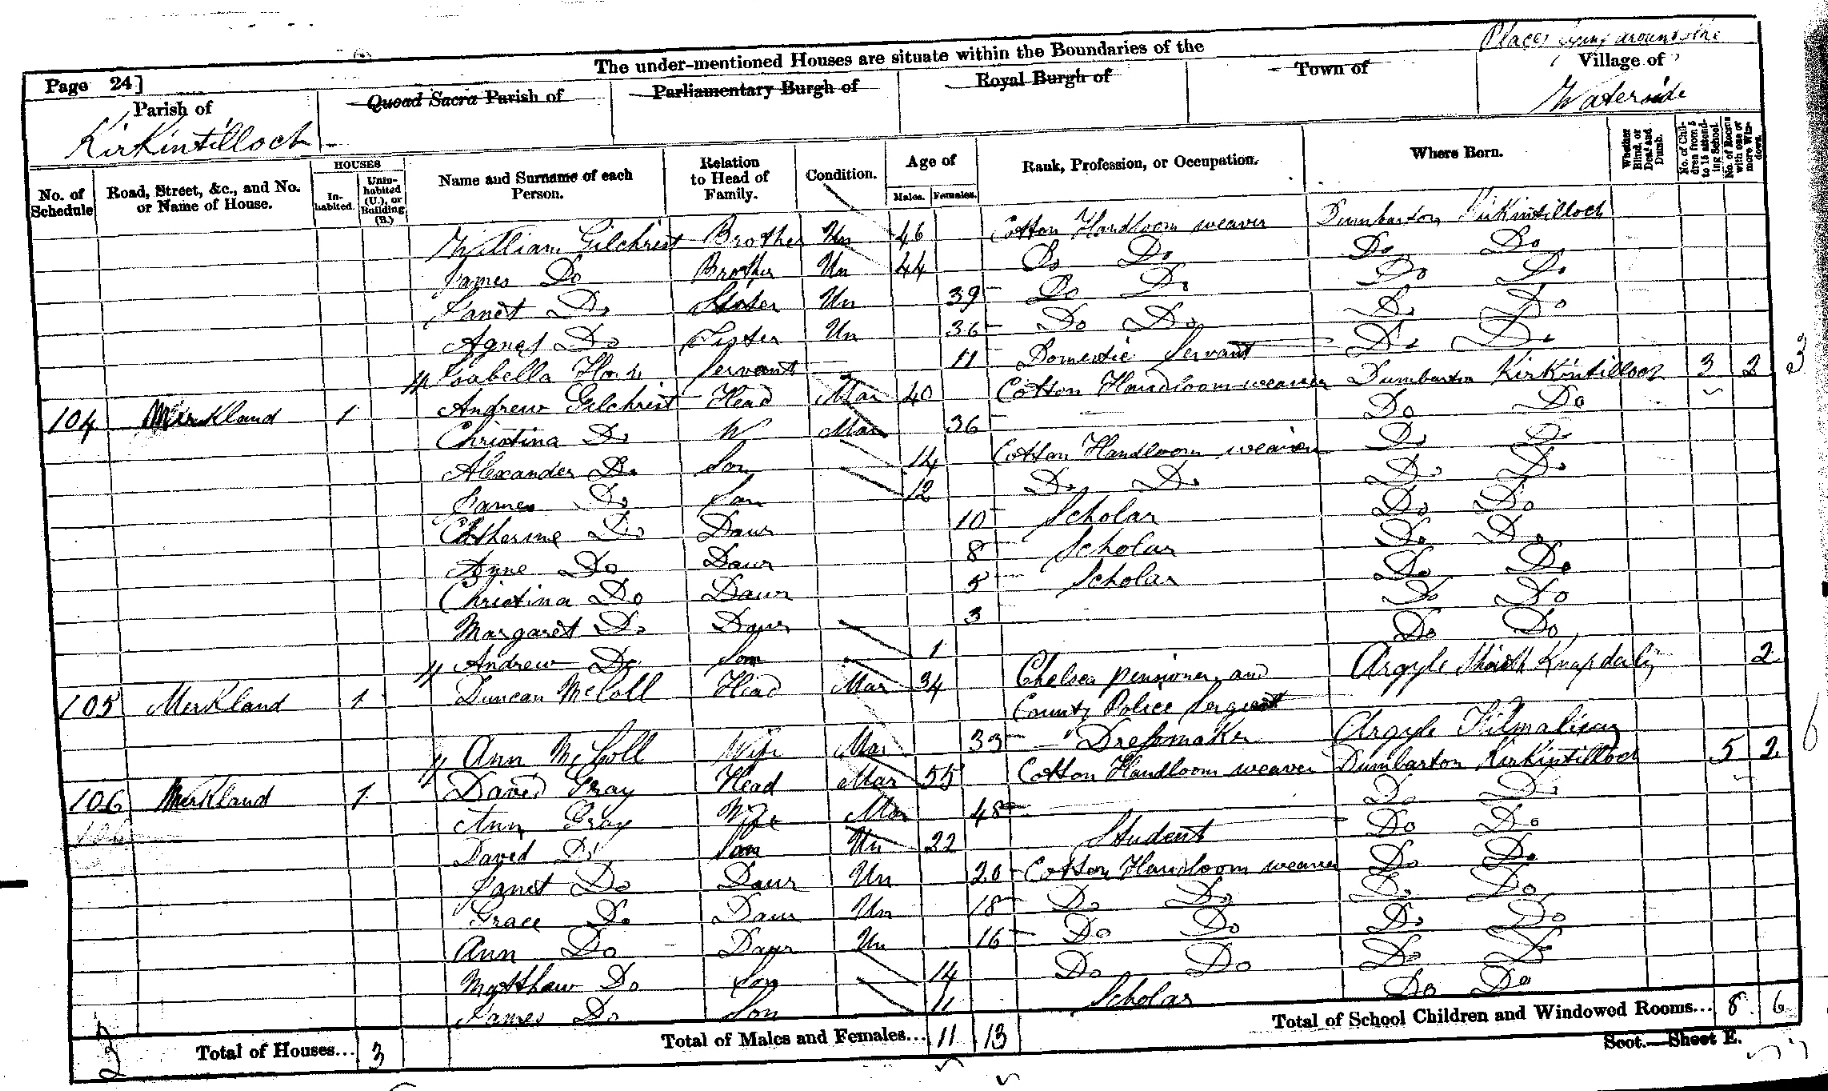 Places lying around the
The under-mentioned Houses are situate within the Boundaries of the
Page 24]
Parish of Kirkintilloch
Quoad Sacra Parish of
Parliamentary Burgh of
Royal Burgh of
Town of
Village of Waterside
No. of Schedule
Road, Street, &c., and No. or Name of House.
HOUSES
Inhabited.
Uninhabited (U.), or Building (B.)
Name and Surname of each Person.
Relation to Head of Family.
Condition.
Age of
Males. Females.
Rank, Profession, or Occupation.
Where Born.
Whether Blind, or Deaf and Dumb.
No. of Children from 5 to 15 attending School.
No. of Rooms with one or more Windows.
William Gilchrist Brother Un 46 Cotton Handloom weaver Dumbarton Kirkintilloch
James Do Brother Un 44 Do Do Do Do
Janet Do Sister Un 39 Do Do Do Do
Agnes Do Sister Un 36 Do Do Do Do
Isabella Servant 11 Domestic Servant Do Do
104 Merkland 1 Andrew Gilchrist Head Mar 40 Cotton Handloom weaver Dumbarton Kirkintilloch 3 2
Christina Do W Mar 36 Do Do
Alexander Do Son 14 Cotton Handloom weaver Do Do
James Do Son 12 Do Do Do Do
Catherine Do Daur 10 Scholar Do Do
Do Daur 8 Scholar Do Do
Christina Do Daur 5 Scholar Do Do
Margaret Do Daur 3 Do Do
Andrew Do Son 1 Do Do
105 Merkland 1 Duncan McColl Head Mar 34 Chelsea pensioner and Argyle Knapdale 2
County Police Sergeant
Ann McColl Wife Mar 33 Dressmaker Argyle
106 Merkland 1 David Gray Head Mar 55 Cotton Handloom weaver Dumbarton Kirkintilloch 5 2
Ann Gray Wife Mar 48 Do Do
David Do Son Un 22 Student Do Do
Janet Do Daur Un 20 Cotton Handloom weaver Do Do
Grace Do Daur Un 18 Do Do Do Do
Ann Do Daur Un 16 Do Do Do Do
Matthew Do Son 14 Do Do Do Do
James Do Son 11 Scholar Do Do
Total of Houses... 3
Total of Males and Females... 11 13
Total of School Children and Windowed Rooms... 8 6
Scot.—Sheet E.